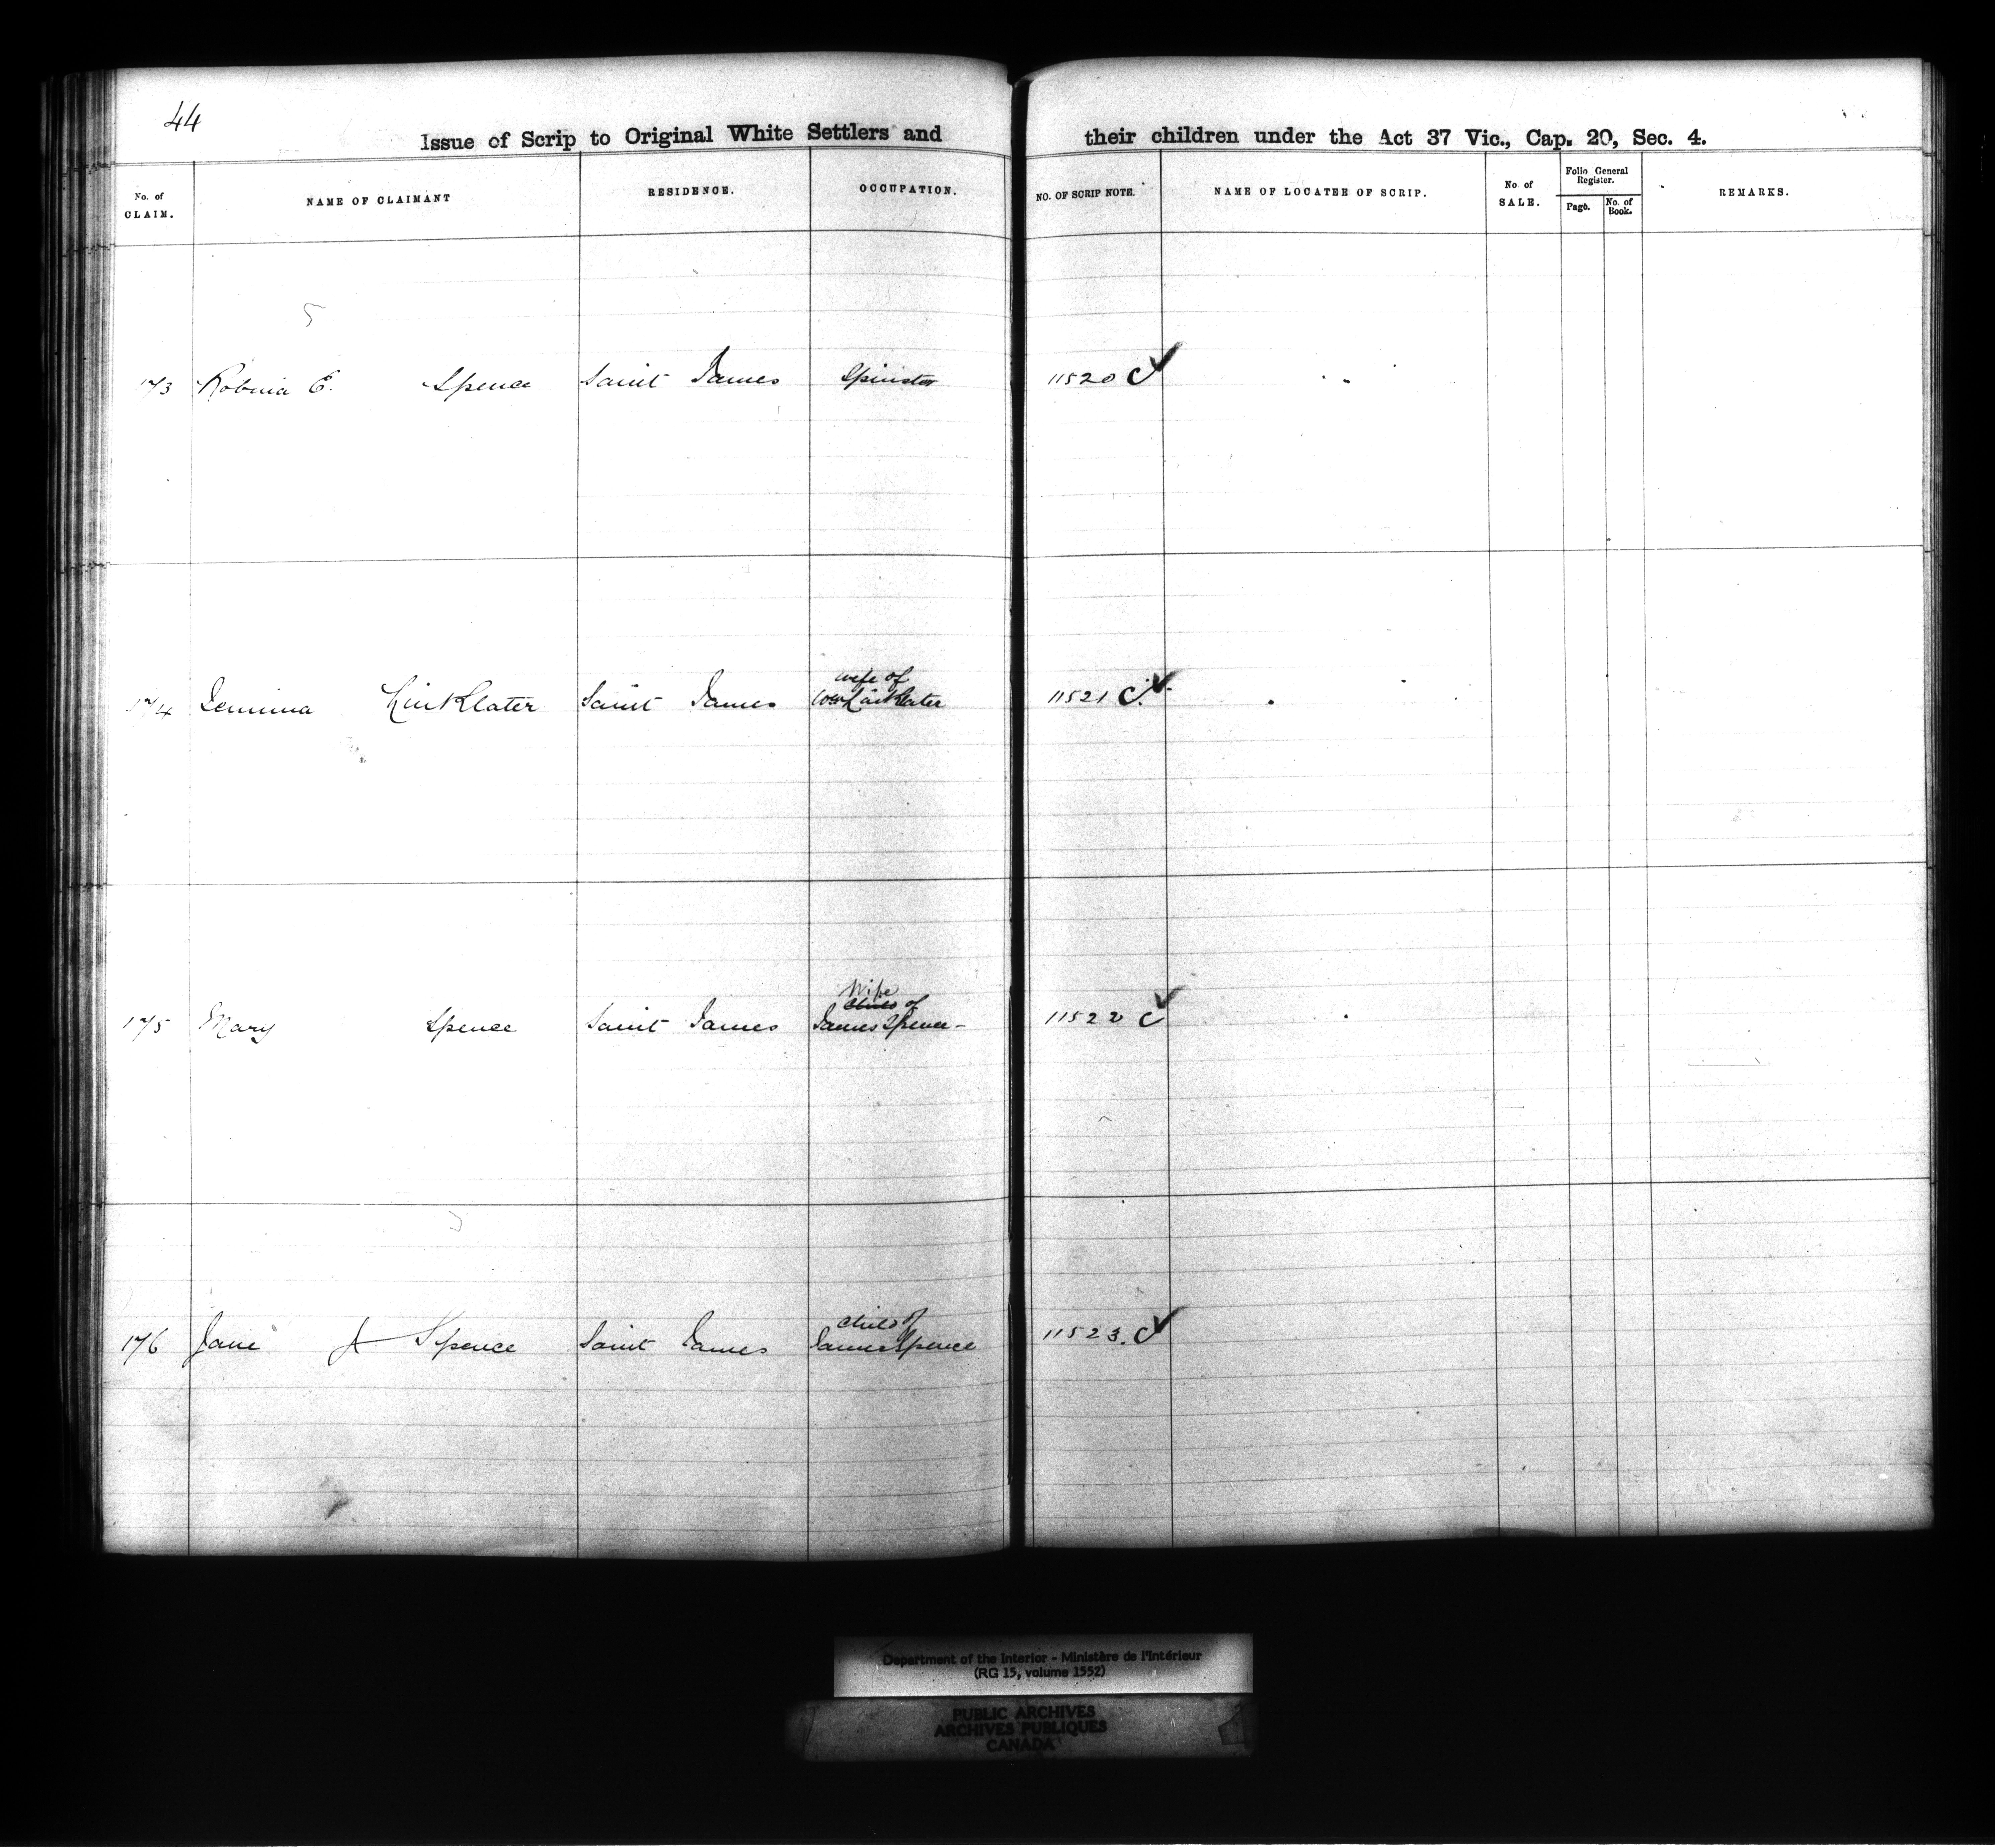 44
Issue of Scrip to Original White Settlers and their children under the Act 37 Vic., Cap. 20, Sec. 4.
No. of CLAIM. NAME OF CLAIMANT RESIDENCE. OCCUPATION. NO. OF SCRIP NOTE. NAME OF LOCATEE OF SCRIP. No of SALE. Folio General Register. Page. No. of Book. REMARKS.
173 Robina E. Spence Saint James Spinster 11520 C
wife of
174 Jemima Linklater Saint James Wm Linklater 11521 C.
Wife
child of
175 Mary Spence Saint James James Spence - 11522 C
child of
176 Jane J Spence Saint James James Spence 11523. C
Department of the Interior - Ministère de l'Intérieur
(RG 15, volume 1552)
PUBLIC ARCHIVES
ARCHIVES PUBLIQUES
CANADA